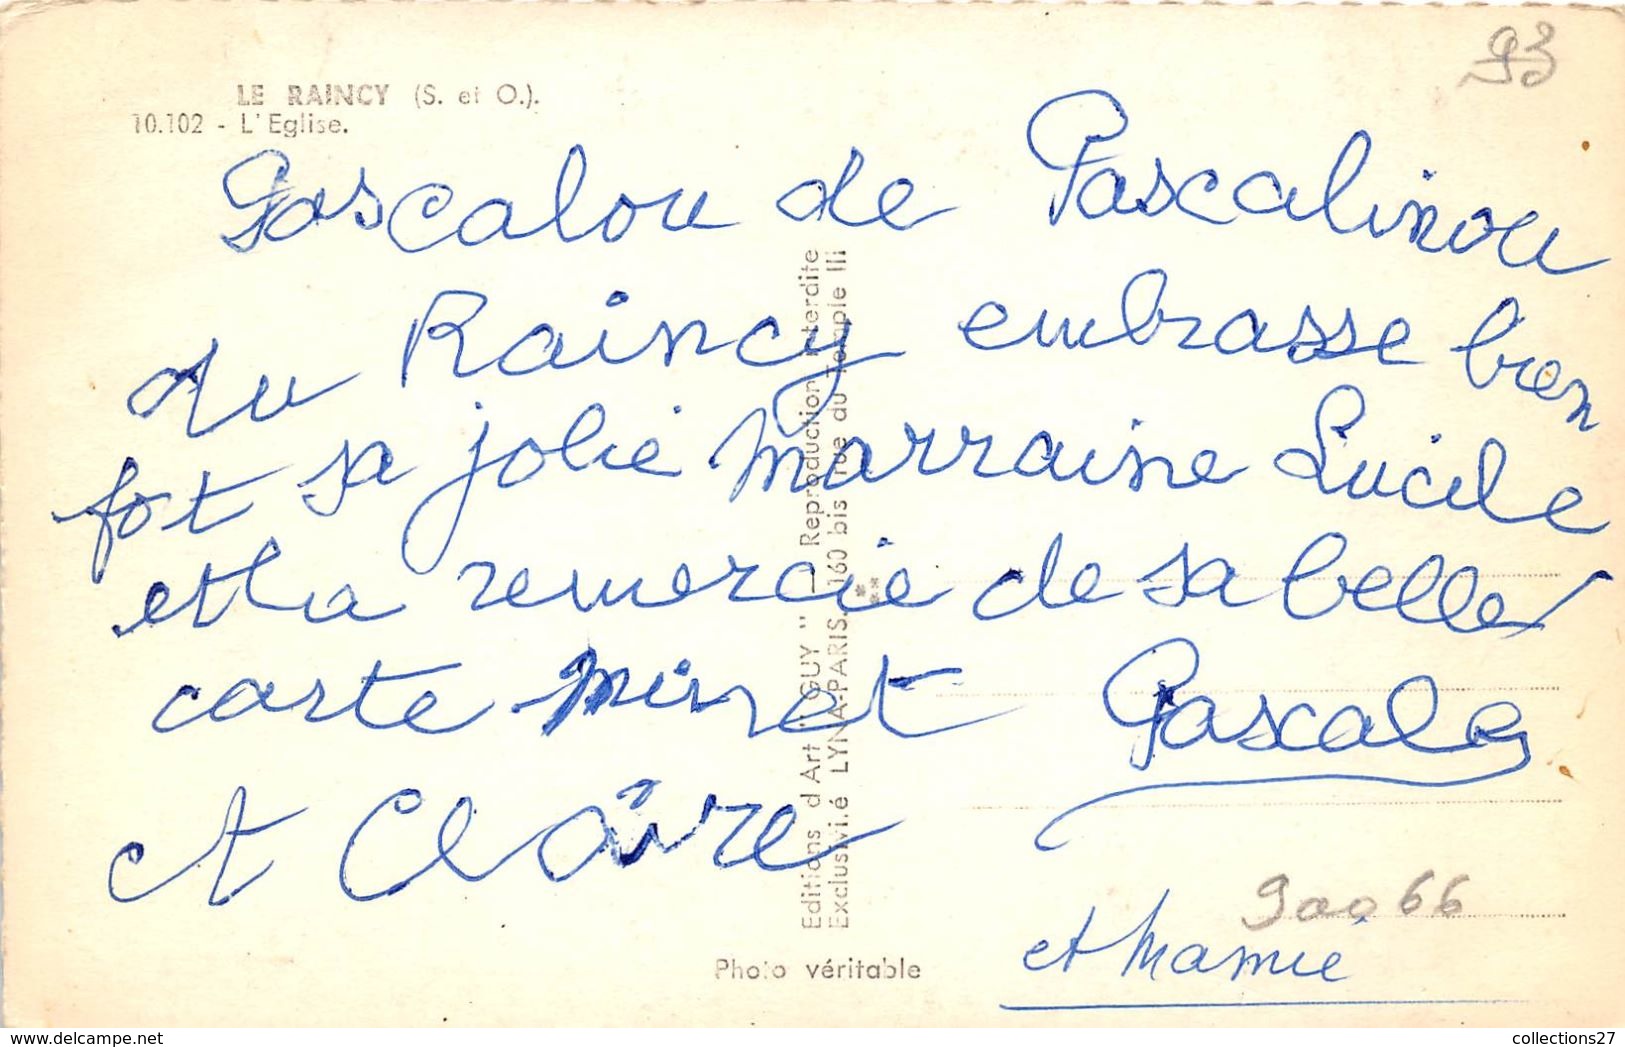 93
LE RAINCY (S. et O.).
10.102 - L'Eglise.
Pascalou de Pascalinou
du Raincy embrasse bien
fot sa jolie Marraine Lucile
et la remercie de sa belle
carte Minet Pascale
et Claire
et Mamie
900 66
Editions d'Art "GUY" - Reproduction interdite
Exclusivité LYNA-PARIS, 160 bis rue du Temple III
Photo véritable
collections27